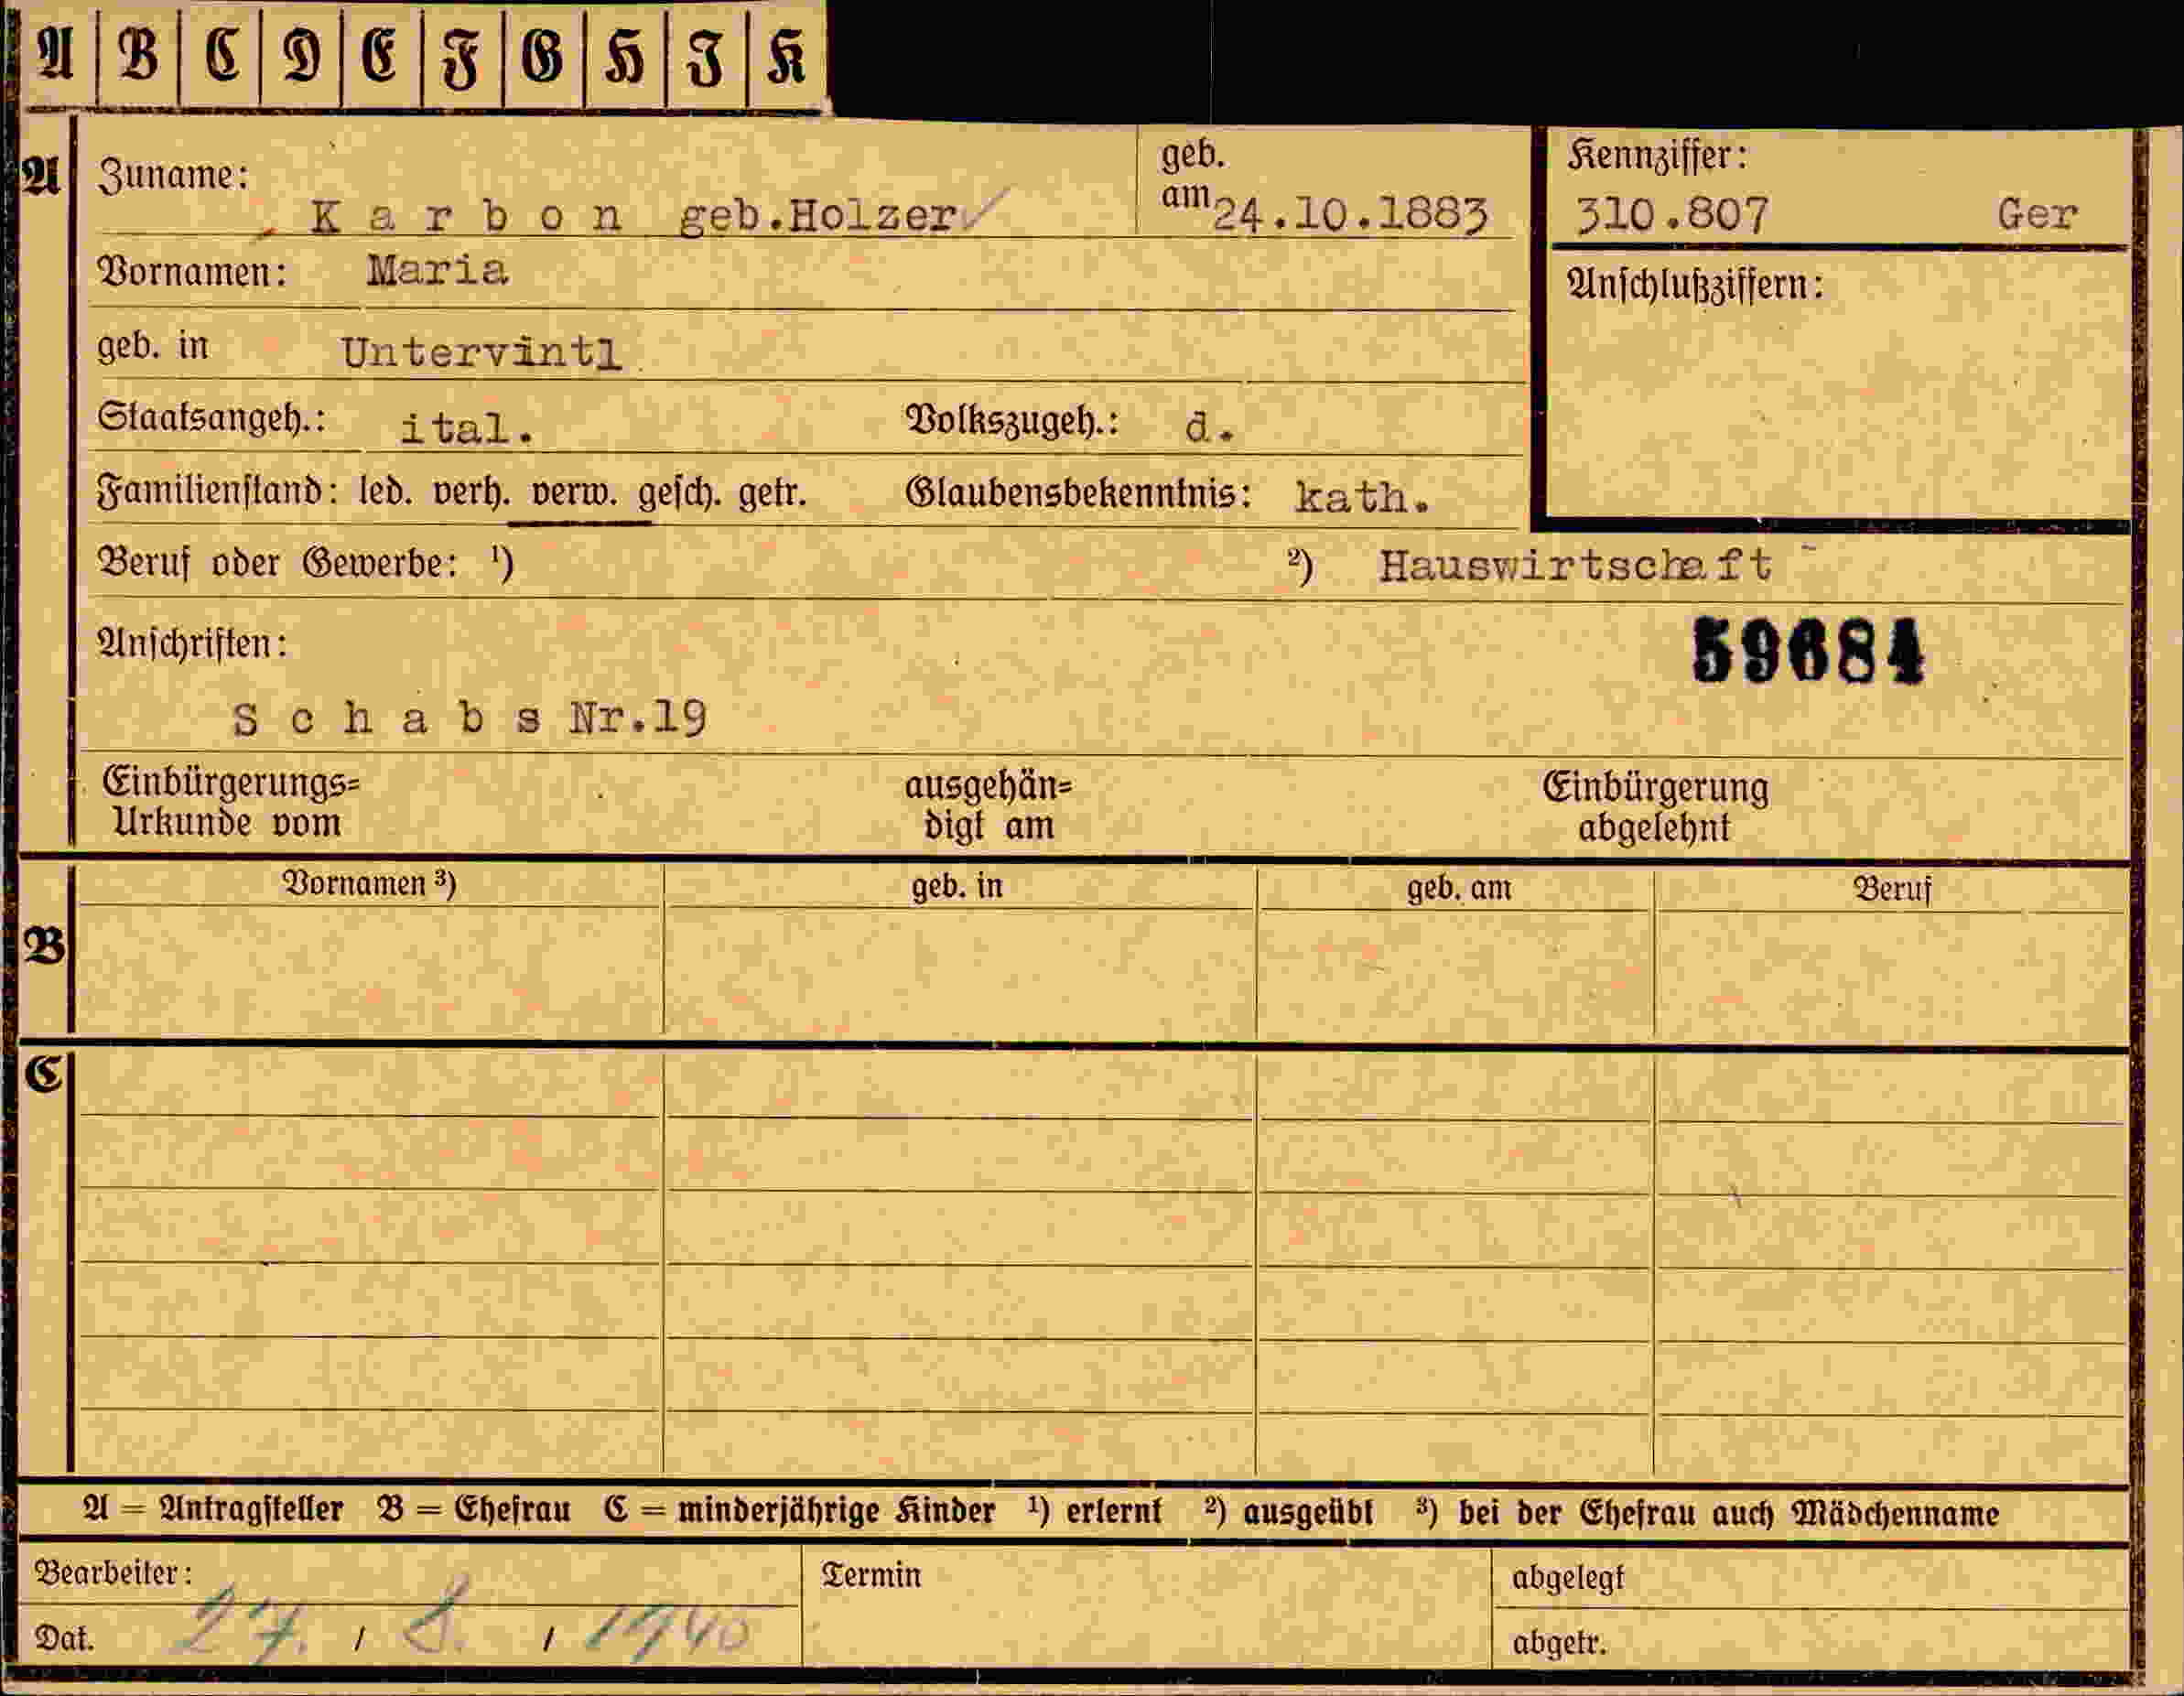 A B C D E F G H I K
A
Zuname: Karbon geb.Holzer
geb. am 24.10.1883
Kennziffer:
310.807 Ger
Vornamen: Maria
Anschlußziffern:
geb. in Untervintl
Staatsangeh.: ital. Volkszugeh.: d.
Familienstand: led. verh. verw. gesch. getr. Glaubensbekenntnis: kath.
Beruf oder Gewerbe: ¹) ²) Hauswirtschaft
Anschriften:
59684
Schabs Nr.19
Einbürgerungs=
Urkunde vom
ausgehän=
digt am
Einbürgerung
abgelehnt
B
Vornamen ³) geb. in geb. am Beruf
C
A = Antragsteller B = Ehefrau C = minderjährige Kinder ¹) erlernt ²) ausgeübt ³) bei der Ehefrau auch Mädchenname
Bearbeiter:
Dat. 27. / 8. / 1940
Termin
abgelegt
abgetr.